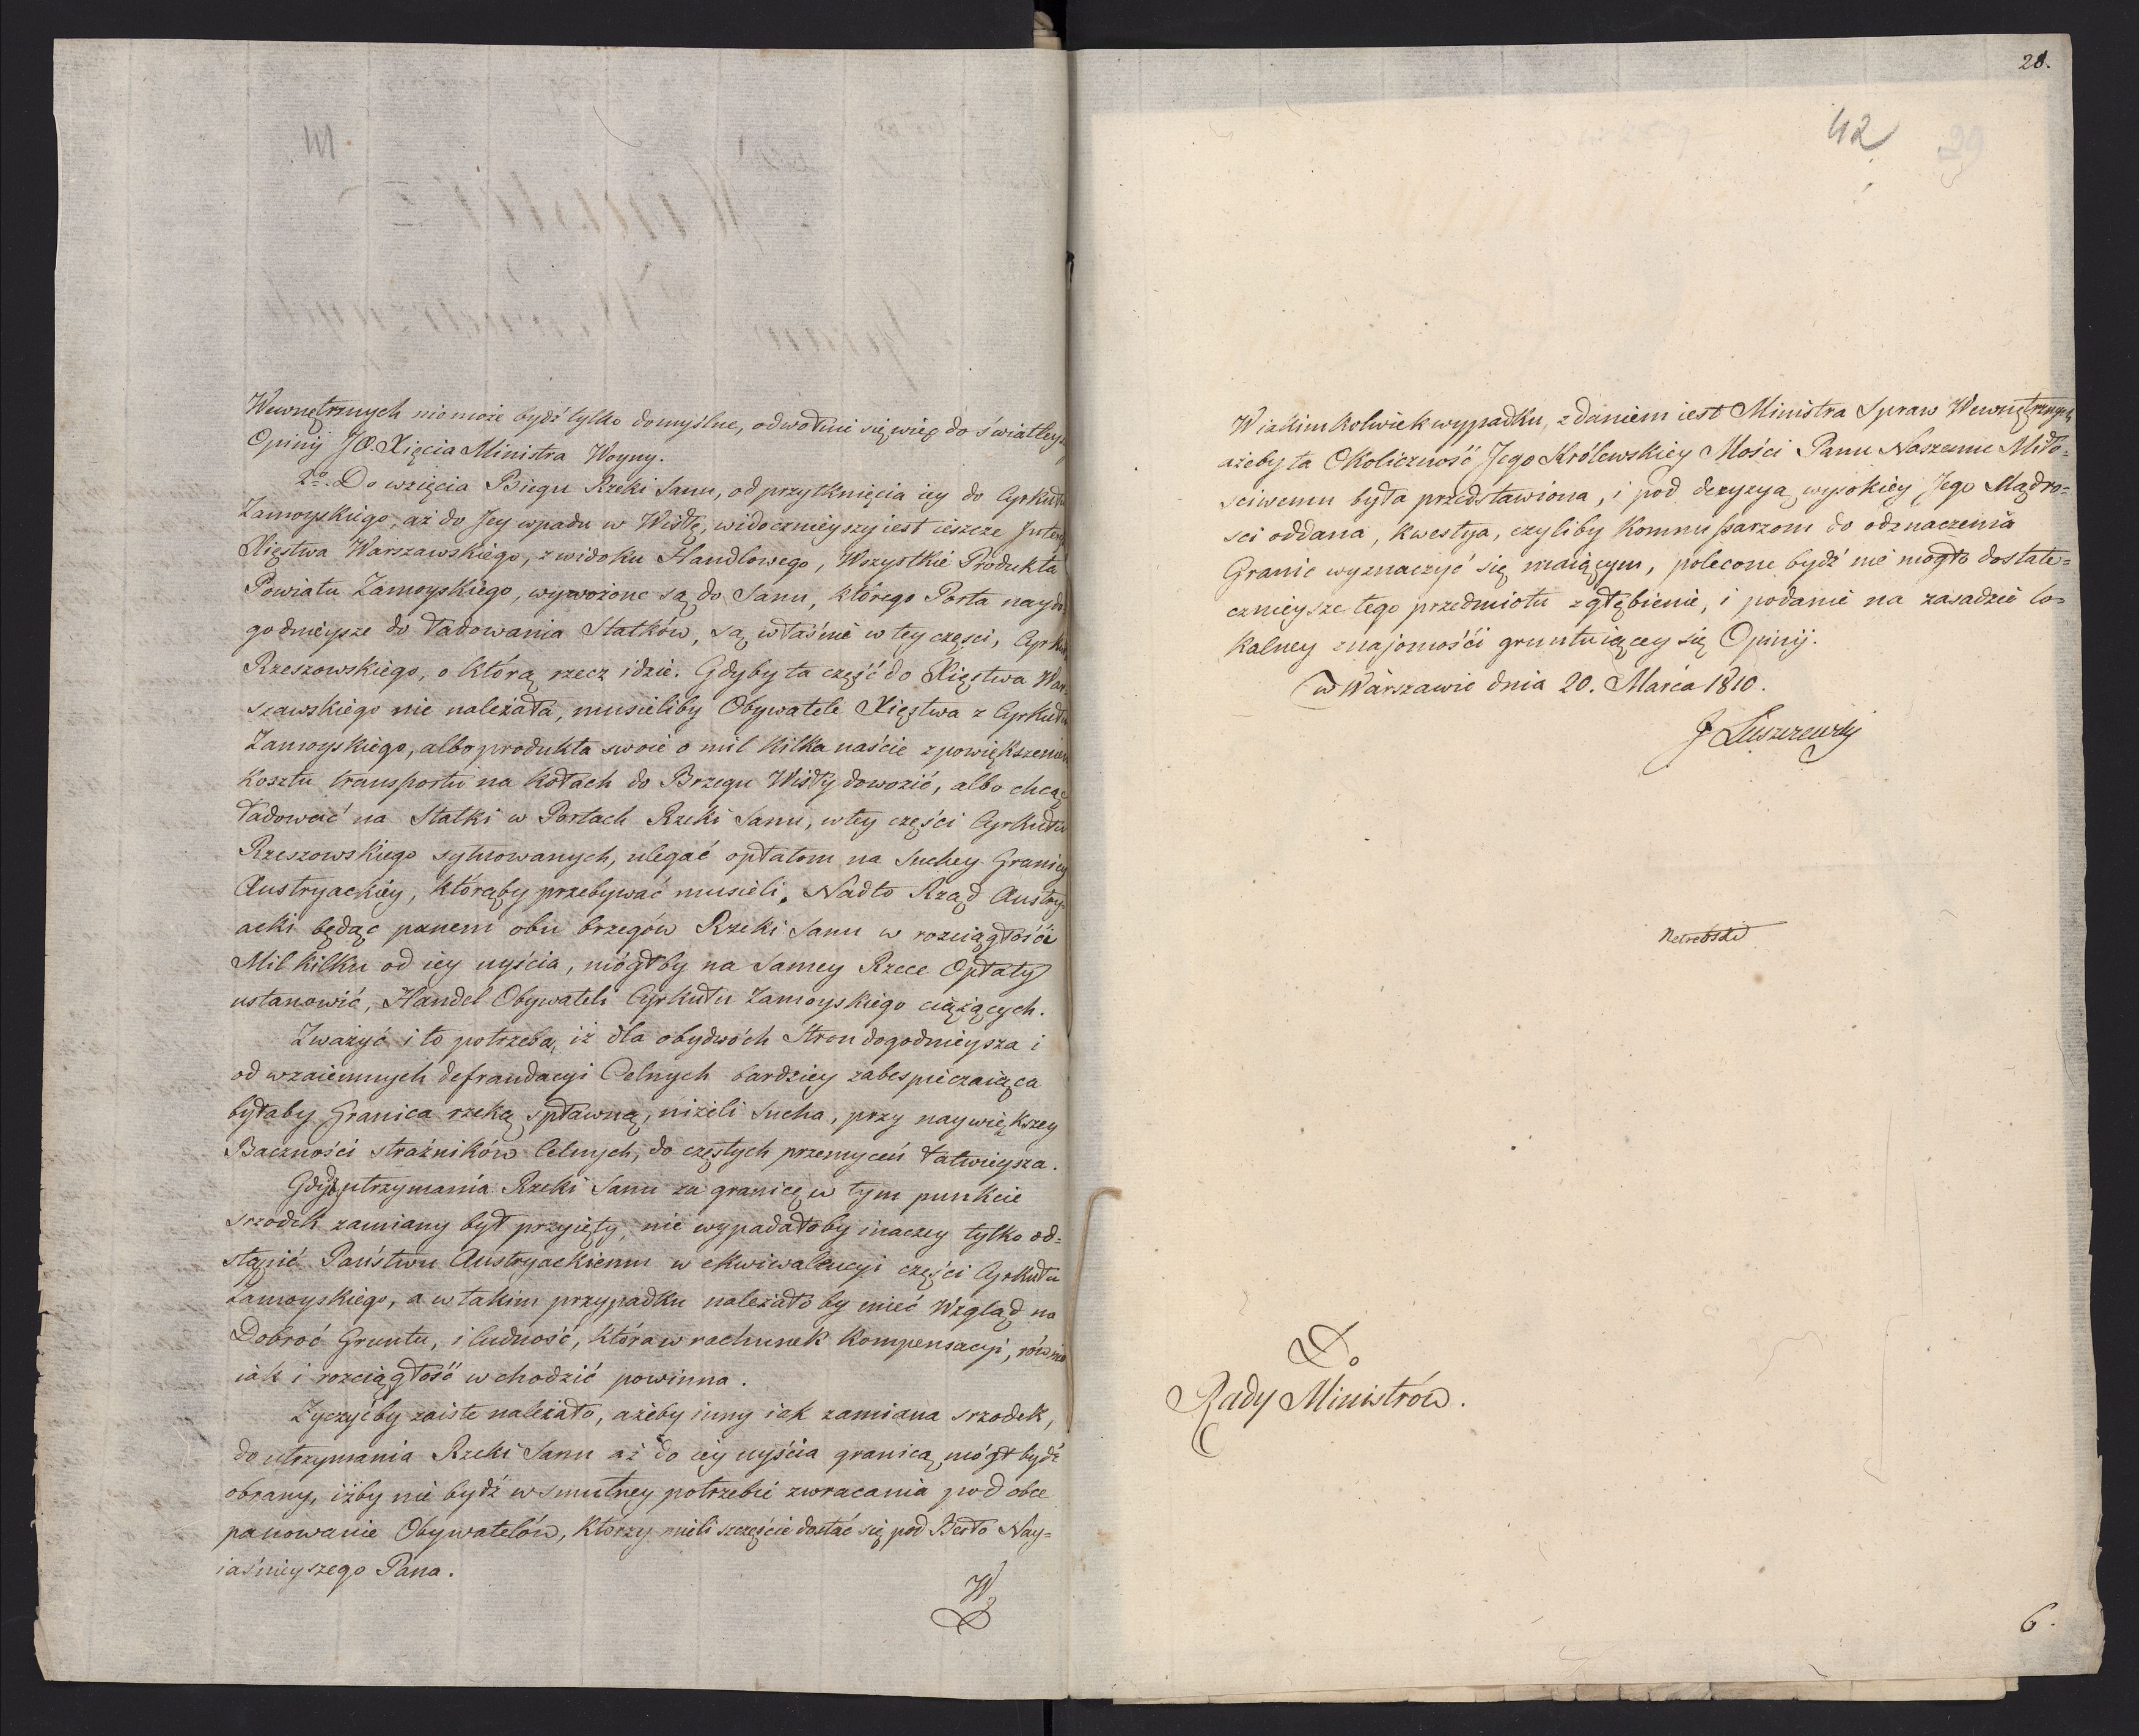 Wewnętrznych niemoże bydź tylko domyślne, odwołuie się więc do światłey
Opinij JO. Xięcia Ministra Woyny.
2o. Do wzięcia Biegu Rzeki Sanu, od przytknięcia iey do Cyrkułu
Zamoyskiego, aż do Jey wpadu w Wisłę, widocznieyszy iest ieszcze Interes
Xięstwa Warszawskiego, z widoku Handlowego, Wszystkie Produkta
Powiatu Zamoyskiego, wywożone są do Sanu, którego Porta naydo=
godnieysze do ładowania Statków, są właśnie w tey części, Cyrkułu
Rzeszowskiego, o którą rzecz idzie. Gdyby ta część do Xięstwa War=
szawskiego nie należała, musieliby Obywatele Xięstwa z Cyrkułu
Zamoyskiego, albo produkta swoie o mil kilkanaście z powiększeniem
Kosztu transportu na kołach do Brzegu Wisły dowozić, albo chcąc
ładować na Statki w Portach Rzeki Sanu, w tey części Cyrkułu
Rzeszowskiego sytuowanych, ulegać opłatom na Suchey Granicy
Austryackiey, którąby przebywać musieli. Nadto Rząd Austry=
acki będąc panem obu brzegów Rzeki Sanu w rozciągłości
Mil kilku od iey uyścia, mógłby na Samey Rzece Opłaty
ustanowić, Handel Obywateli Cyrkułu Zamoyskiego ciążących.
Zważyć i to potrzeba, iż dla obydwóch Stron dogodnieysza i
od wzaiemnych defraudacyi Celnych bardziey zabespieczaiąca
byłaby Granica rzeką spławną, niżeli Sucha, przy naywiększey
Baczności strażników Celnych, do częstych przemyceń łatwieysza.
Gdyby utrzymania Rzeki Sanu za granicę w tym punkcie
srzodek zamiany był przyięty, nie wypadałoby inaczey tylko od=
stąpić Państwu Austryackiemu w ekwiwalencyi części Cyrkułu
Zamoyskiego, a w takim przypadku należało by mieć Wzgląd na
Dobroć Gruntu, i ludność, która w rachunek Kompensacyi, równie
iak i rozciągłość wchodzić powinna.
Życzyćby zaiste należało, ażeby inny iak zamiana srzodek,
do utrzymania Rzeki Sanu aż do iey uyścia granicą, mógł bydź
obrany, iżby nie bydź w smutney potrzebie zwracania pod obce
panowanie Obywatelów, którzy mieli szczęście dostać się pod Berło Nay=
iaśnieyszego Pana.
W
28.
42
39
W iakimkolwiek wypadku, zdaniem iest Ministra Spraw Wewnętrznych
ażeby ta Okoliczność Jego Królewskiey Mości Panu Naszemu Miło=
sciwemu była przedstawiona, i pod decyzyą wysokiey Jego Mądro=
sci oddana, kwestya, czyliby Kommissarzom do odznaczenia
Granic wyznaczyć się maiącym, polecone bydź nie mogło dostate=
cznieysze tego przedmiotu zgłębienie, i podanie na zasadzie lo=
kalney znajomości gruntuiącey się Opinij.
w Warszawie dnia 20. Marca 1810.
J Luszczewski
Do
Rady Ministrów.
6.